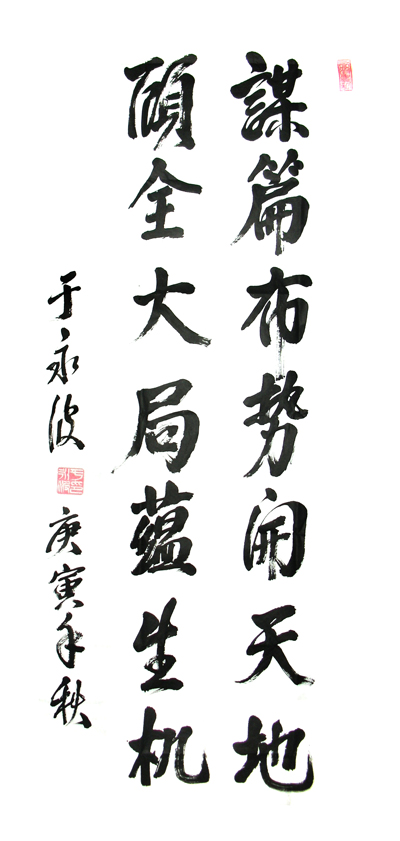 謀篇布势開天地
頋全大局蘊生机
于永波 庚寅年秋